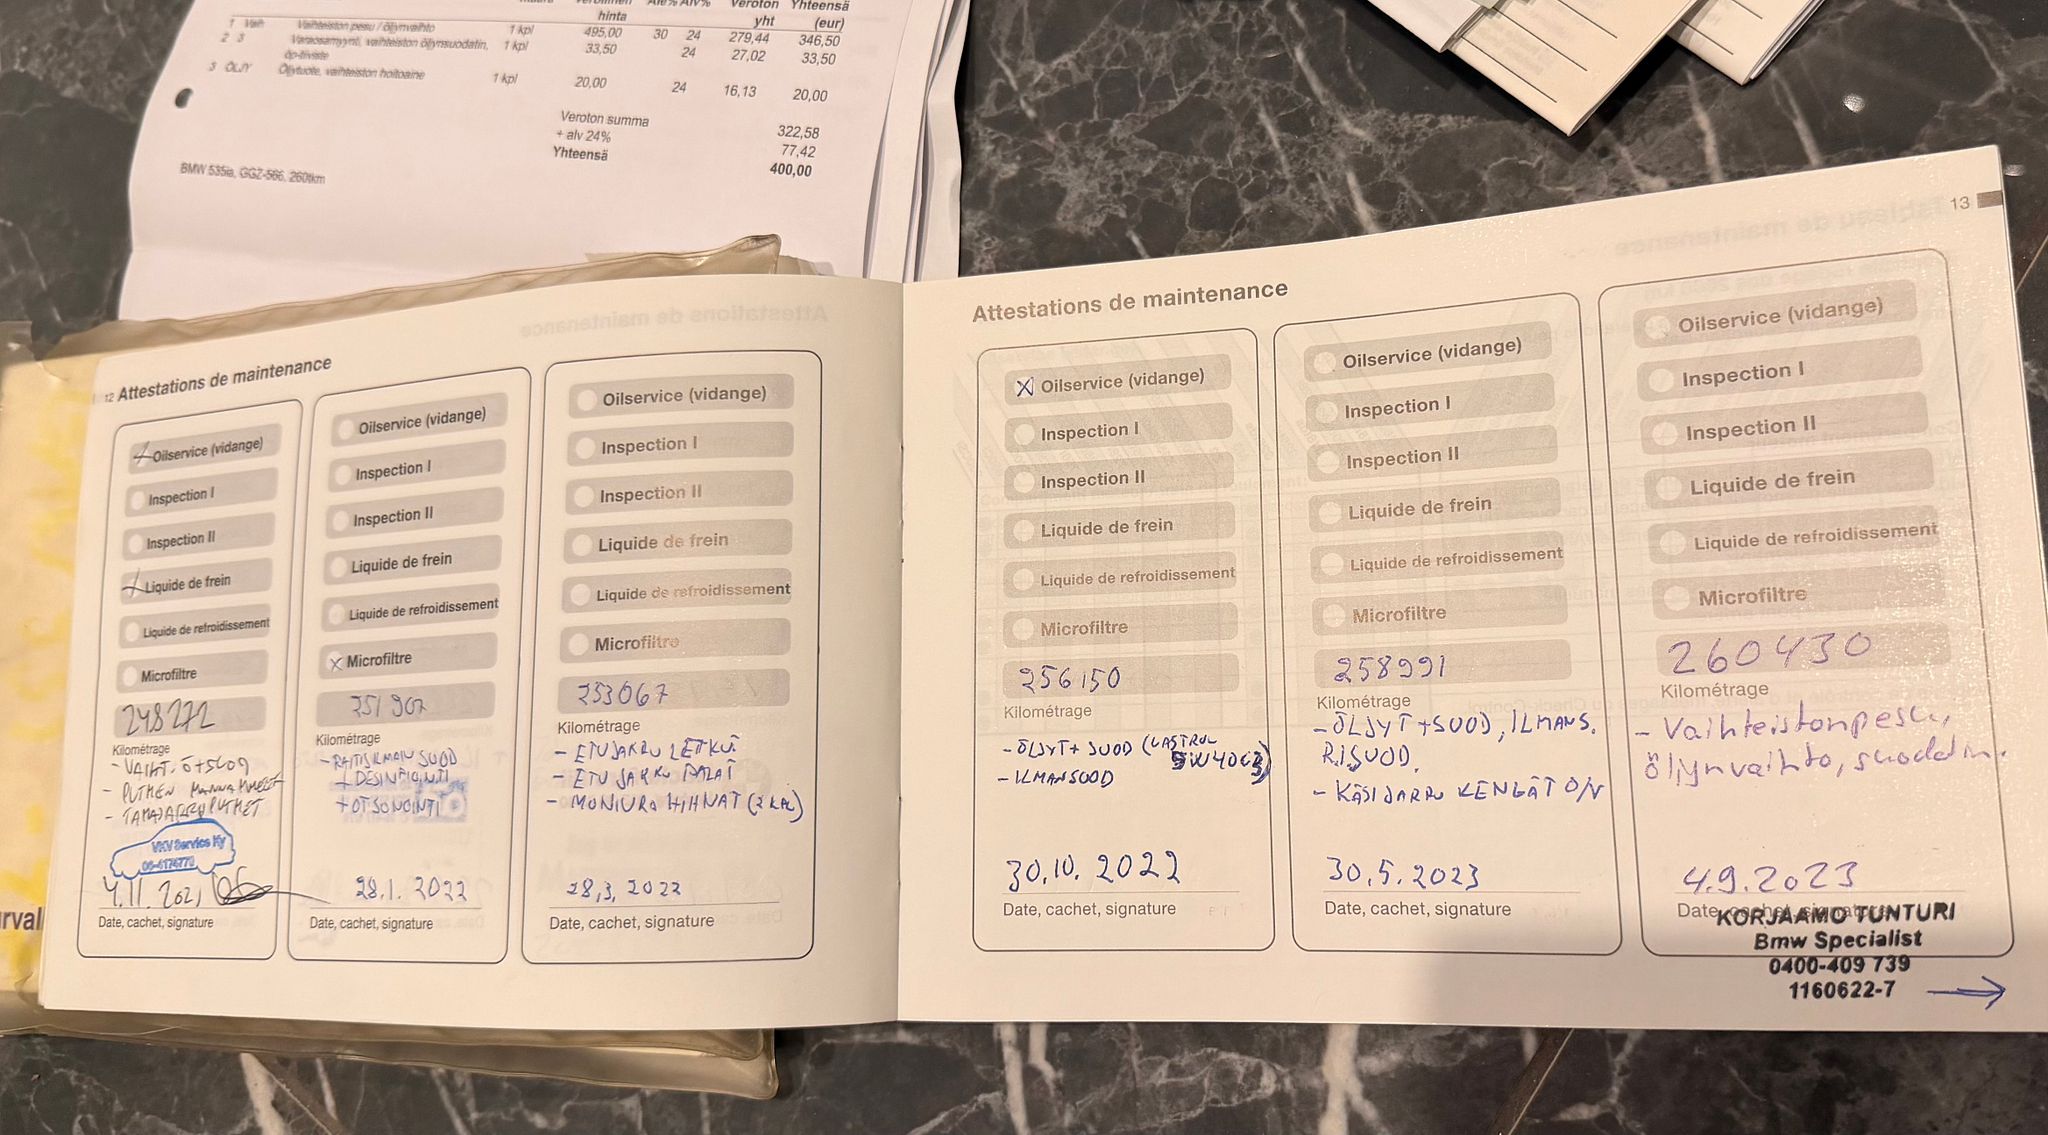 hinta Ale% Alv% Veroton Yhteensä
yht (eur)
1 Vaih Vaihteiston pesu / öljynvaihto 1 kpl 495,00 30 24 279,44 346,50
2 3 Varaosamyynti, vaihteiston öljynsuodatin, 1 kpl 33,50 24 27,02 33,50
öp-tiiviste
3 ÖLJY Öljytuote, vaihteiston hoitoaine 1 kpl 20,00 24 16,13 20,00
Veroton summa 322,58
+ alv 24% 77,42
Yhteensä 400,00
BMW 535ia, GGZ-566, 260tkm
12 Attestations de maintenance
Oilservice (vidange)
Inspection I
Inspection II
Liquide de frein
Liquide de refroidissement
Microfiltre
248272
Kilométrage
- VAIHT. Ö+SUOD
- PUTKEN
VKV Service Ky
4.11.2021
Date, cachet, signature
Oilservice (vidange)
Inspection I
Inspection II
Liquide de frein
Liquide de refroidissement
X Microfiltre
251907
Kilométrage
- RAITISILMAN SUOD
+ DESINFIOINTI
+ OTSONOINTI
28.1.2022
Date, cachet, signature
Oilservice (vidange)
Inspection I
Inspection II
Liquide de frein
Liquide de refroidissement
Microfiltre
253067
Kilométrage
- ETUJARRU LETKUT
- ETUJARRU PALAT
- MONIURA HIHNAT (2 KPL)
28.3.2022
Date, cachet, signature
13
Attestations de maintenance
X Oilservice (vidange)
Inspection I
Inspection II
Liquide de frein
Liquide de refroidissement
Microfiltre
256150
Kilométrage
- ÖLJYT + SUOD (CASTROL
5W40 C3)
- ILMANSUOD
30.10.2022
Date, cachet, signature
Oilservice (vidange)
Inspection I
Inspection II
Liquide de frein
Liquide de refroidissement
Microfiltre
258991
Kilométrage
- ÖLJYT + SUOD, ILMANS.
R.I.SUOD.
- KÄSIJARRU KENGÄT O/V
30.5.2023
Date, cachet, signature
Oilservice (vidange)
Inspection I
Inspection II
Liquide de frein
Liquide de refroidissement
Microfiltre
260430
Kilométrage
- Vaihteistonpesu,
öljynvaihto, suodatin.
4.9.2023
Date, cachet, signature
KORJAAMO TUNTURI
Bmw Specialist
0400-409 739
1160622-7